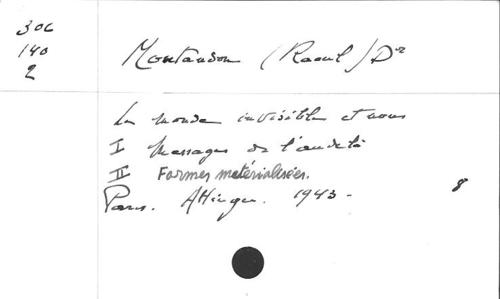 306
140
2
Montandon (Raoul) Dr
Le monde invisible et nous
I Messages de l'au delà
II Formes matérialisées.
Paris. Attinger. 1943.
8